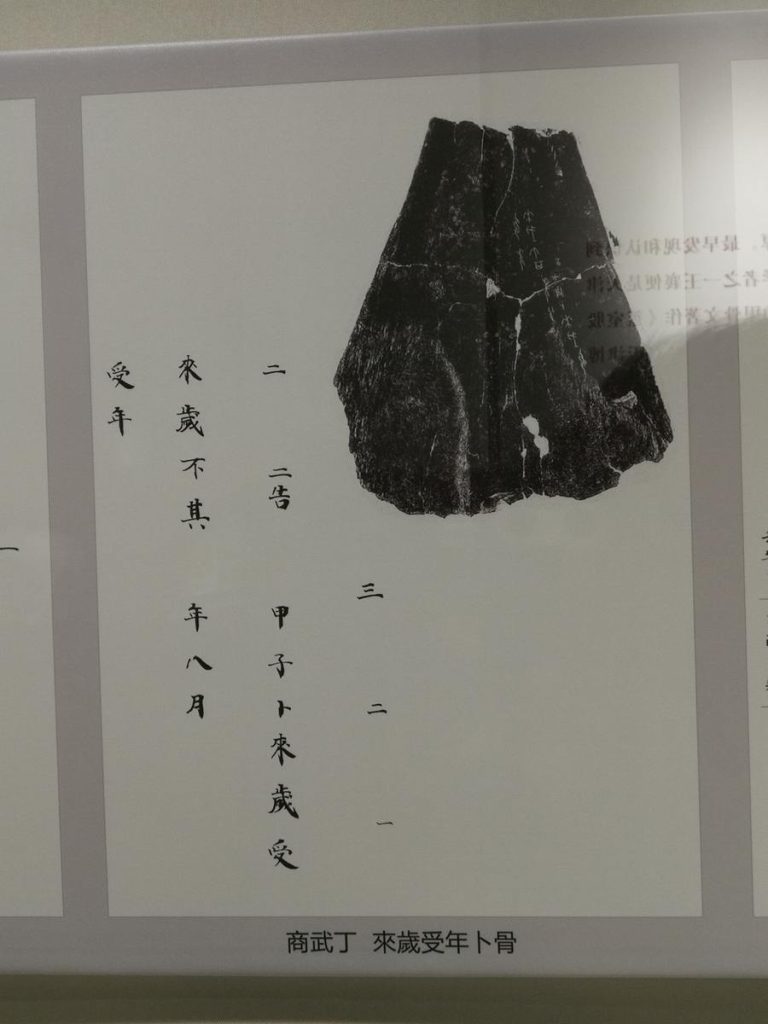 三 二 一
二 二告 甲子卜來歲受
來歲不其 年八月
受年
商武丁 來歲受年卜骨